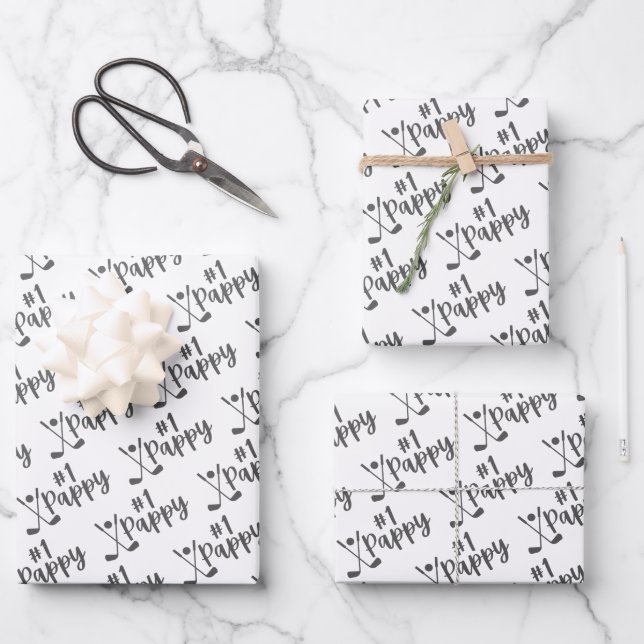 #1
Pappy
#1
Pappy
#1
Pappy
#1
Pappy
#1
Pappy
#1
Pappy
#1
Pappy
#1
Pappy
#1
Pappy
#1
Pappy
#1
Pappy
#1
Pappy